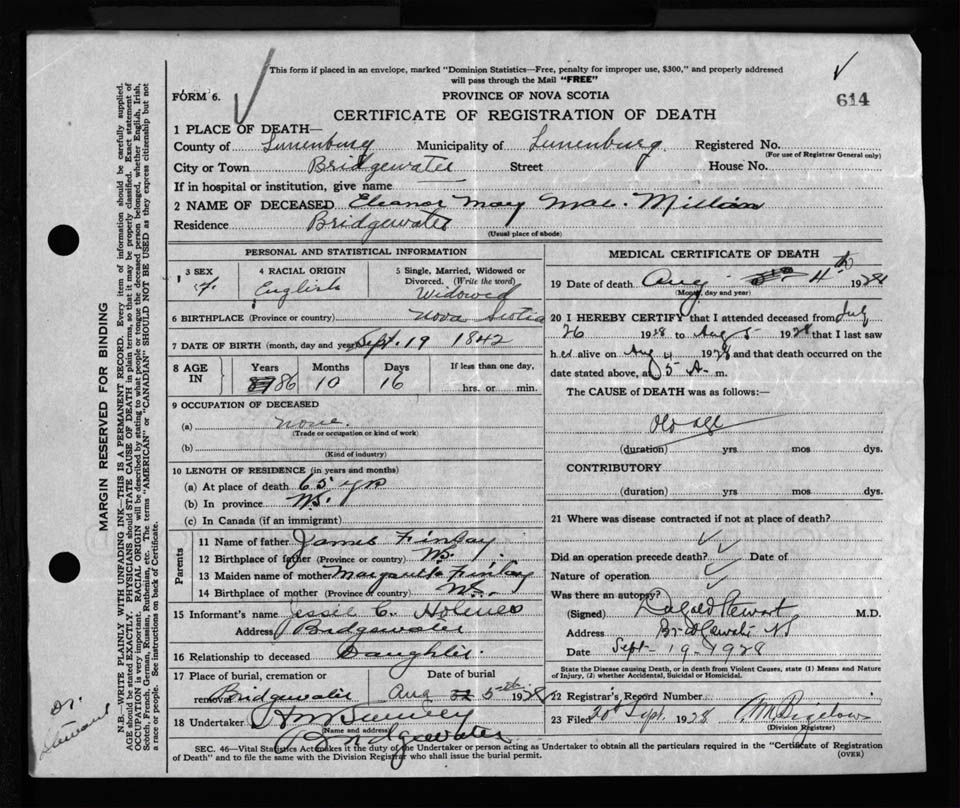 This form if placed in an envelope, marked "Dominion Statistics—Free, penalty for improper use, $300," and properly addressed
will pass through the Mail "FREE"
FORM 6.
PROVINCE OF NOVA SCOTIA
614
CERTIFICATE OF REGISTRATION OF DEATH
1 PLACE OF DEATH—
County of Lunenburg Municipality of Lunenburg Registered No.
(For use of Registrar General only)
City or Town Bridgewater Street House No.
If in hospital or institution, give name
2 NAME OF DECEASED Eleanor May Mac. Millan
Residence Bridgewater
(Usual place of abode)
PERSONAL AND STATISTICAL INFORMATION
3 SEX 4 RACIAL ORIGIN 5 Single, Married, Widowed or
Divorced. (Write the word)
f. English Widowed
6 BIRTHPLACE (Province or country) Nova Scotia
7 DATE OF BIRTH (month, day and year) Sept. 19 1842
8 AGE IN Years Months Days If less than one day,
86 10 16 hrs. or min.
9 OCCUPATION OF DECEASED
(a) none.
(Trade or occupation or kind of work)
(b)
(Kind of industry)
10 LENGTH OF RESIDENCE (in years and months)
(a) At place of death 65 yrs
(b) In province N.S.
(c) In Canada (if an immigrant)
Parents
11 Name of father James Finlay
12 Birthplace of father (Province or country) N.S.
13 Maiden name of mother Finlay
14 Birthplace of mother (Province or country) N.S.
15 Informant's name Jessie C. Holmes
Address Bridgewater
16 Relationship to deceased Daughter.
17 Place of burial, cremation or removal Date of burial
Bridgewater Aug 5th 1928
18 Undertaker
(Name and address)
Bridgewater
MEDICAL CERTIFICATE OF DEATH
19 Date of death Aug 4th 1928
(Month, day and year)
20 I HEREBY CERTIFY that I attended deceased from July
26 1928 to Aug 5 1928 that I last saw
her alive on Aug 4 1928 and that death occurred on the
date stated above, at 5 A. m.
The CAUSE of DEATH was as follows:—
Old age
(duration) yrs mos dys.
CONTRIBUTORY
(duration) yrs. mos. dys.
21 Where was disease contracted if not at place of death?
Did an operation precede death? Date of
Nature of operation
Was there an autopsy?
(Signed) Dugald Stewart M.D.
Address Bridgewater NS
Date Sept - 19 - 1928
State the Disease causing Death, or in death from Violent Causes, state (1) Means and Nature
of Injury, (2) whether Accidental, Suicidal or Homicidal.
22 Registrar's Record Number
23 Filed 20 Sept. 1928
(Division Registrar)
SEC. 46—Vital Statistics Act makes it the duty of the Undertaker or person acting as Undertaker to obtain all the particulars required in the "Certificate of Registration
of Death" and to file the same with the Division Registrar who shall issue the burial permit.
(OVER)
MARGIN RESERVED FOR BINDING
N.B.—WRITE PLAINLY WITH UNFADING INK—THIS IS A PERMANENT RECORD. Every item of information should be carefully supplied.
AGE should be stated EXACTLY. PHYSICIANS should STATE CAUSE OF DEATH in plain terms, so that it may be properly classified. Exact statement of
OCCUPATION is very important. RACIAL ORIGIN will be described by stating to what people or tongue the deceased person belonged, whether English, Irish,
Scotch, French, German, Russian, Ruthenian, etc. The terms "AMERICAN" or "CANADIAN" SHOULD NOT BE USED as they express citizenship but not
a race or people. See instructions on back of Certificate.
Dr.
Stewart